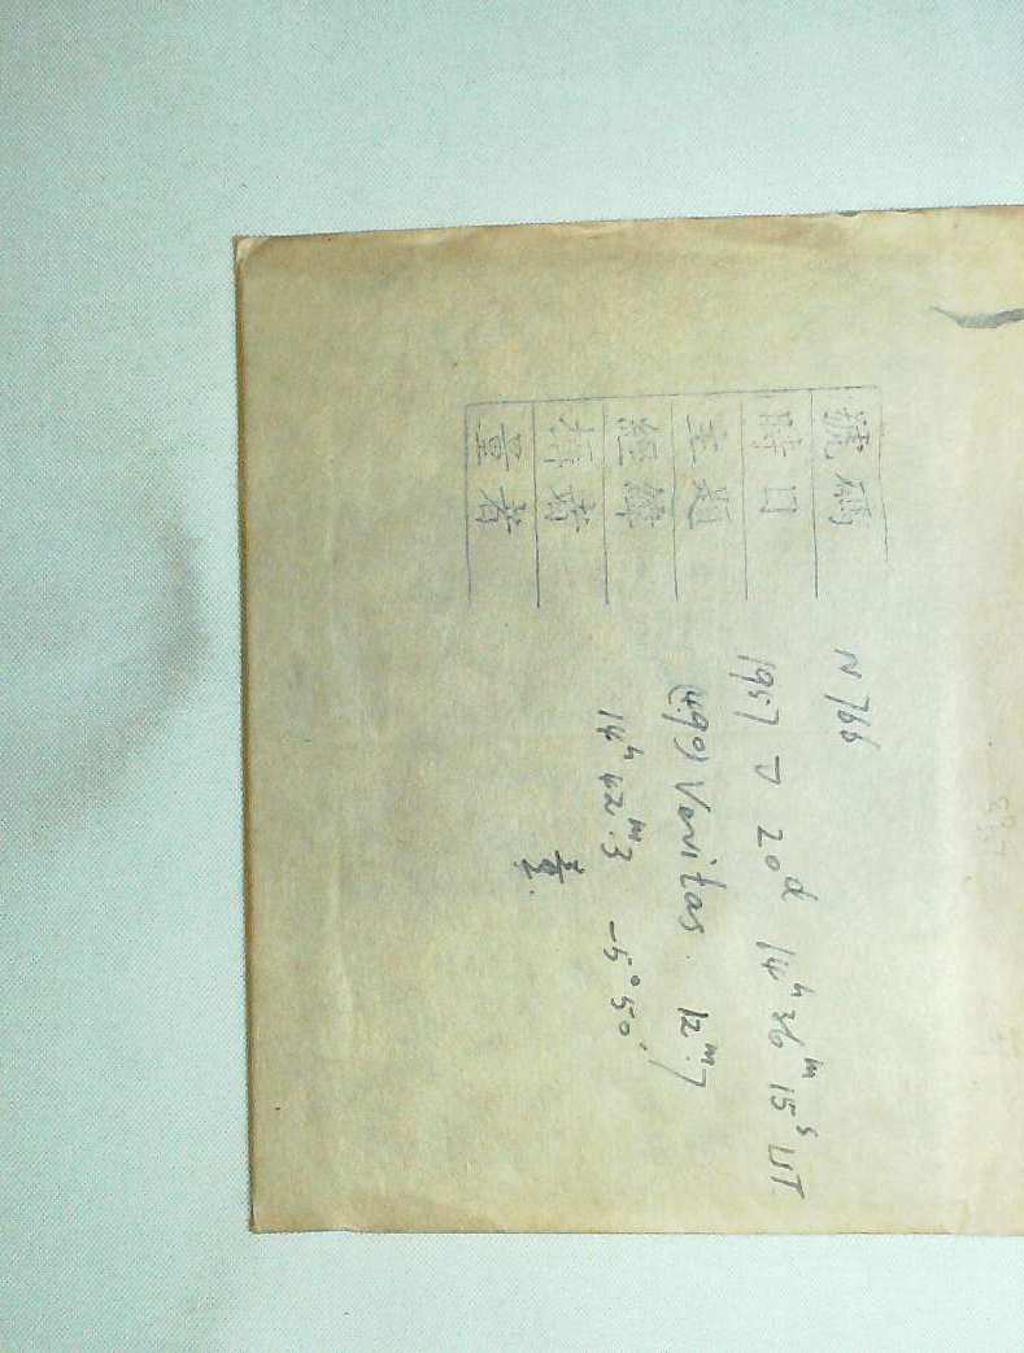 號碼 N766
時日 1957 V 20d 14h 36m 15s UT
主題 (490) Veritas. 12m.7
經緯 14h 42m.3 -5° 50′
量者